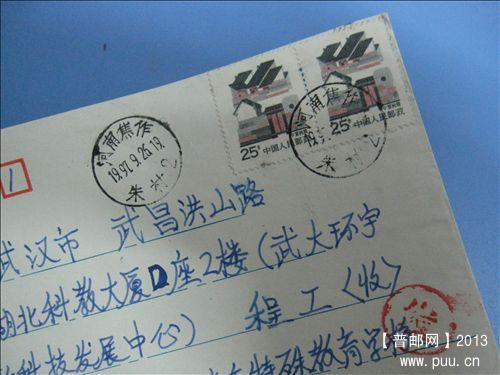 25分 中国人民邮政
25分 中国人民邮政
河南焦作
1997.9.26.19
朱村 2
河南
朱村 2
1
武汉市 武昌洪山路
湖北科教大厦D座2楼(武大环宇
科技发展中心) 程工(收)
特殊教育学校
【普邮网】2013
www.puu.cn